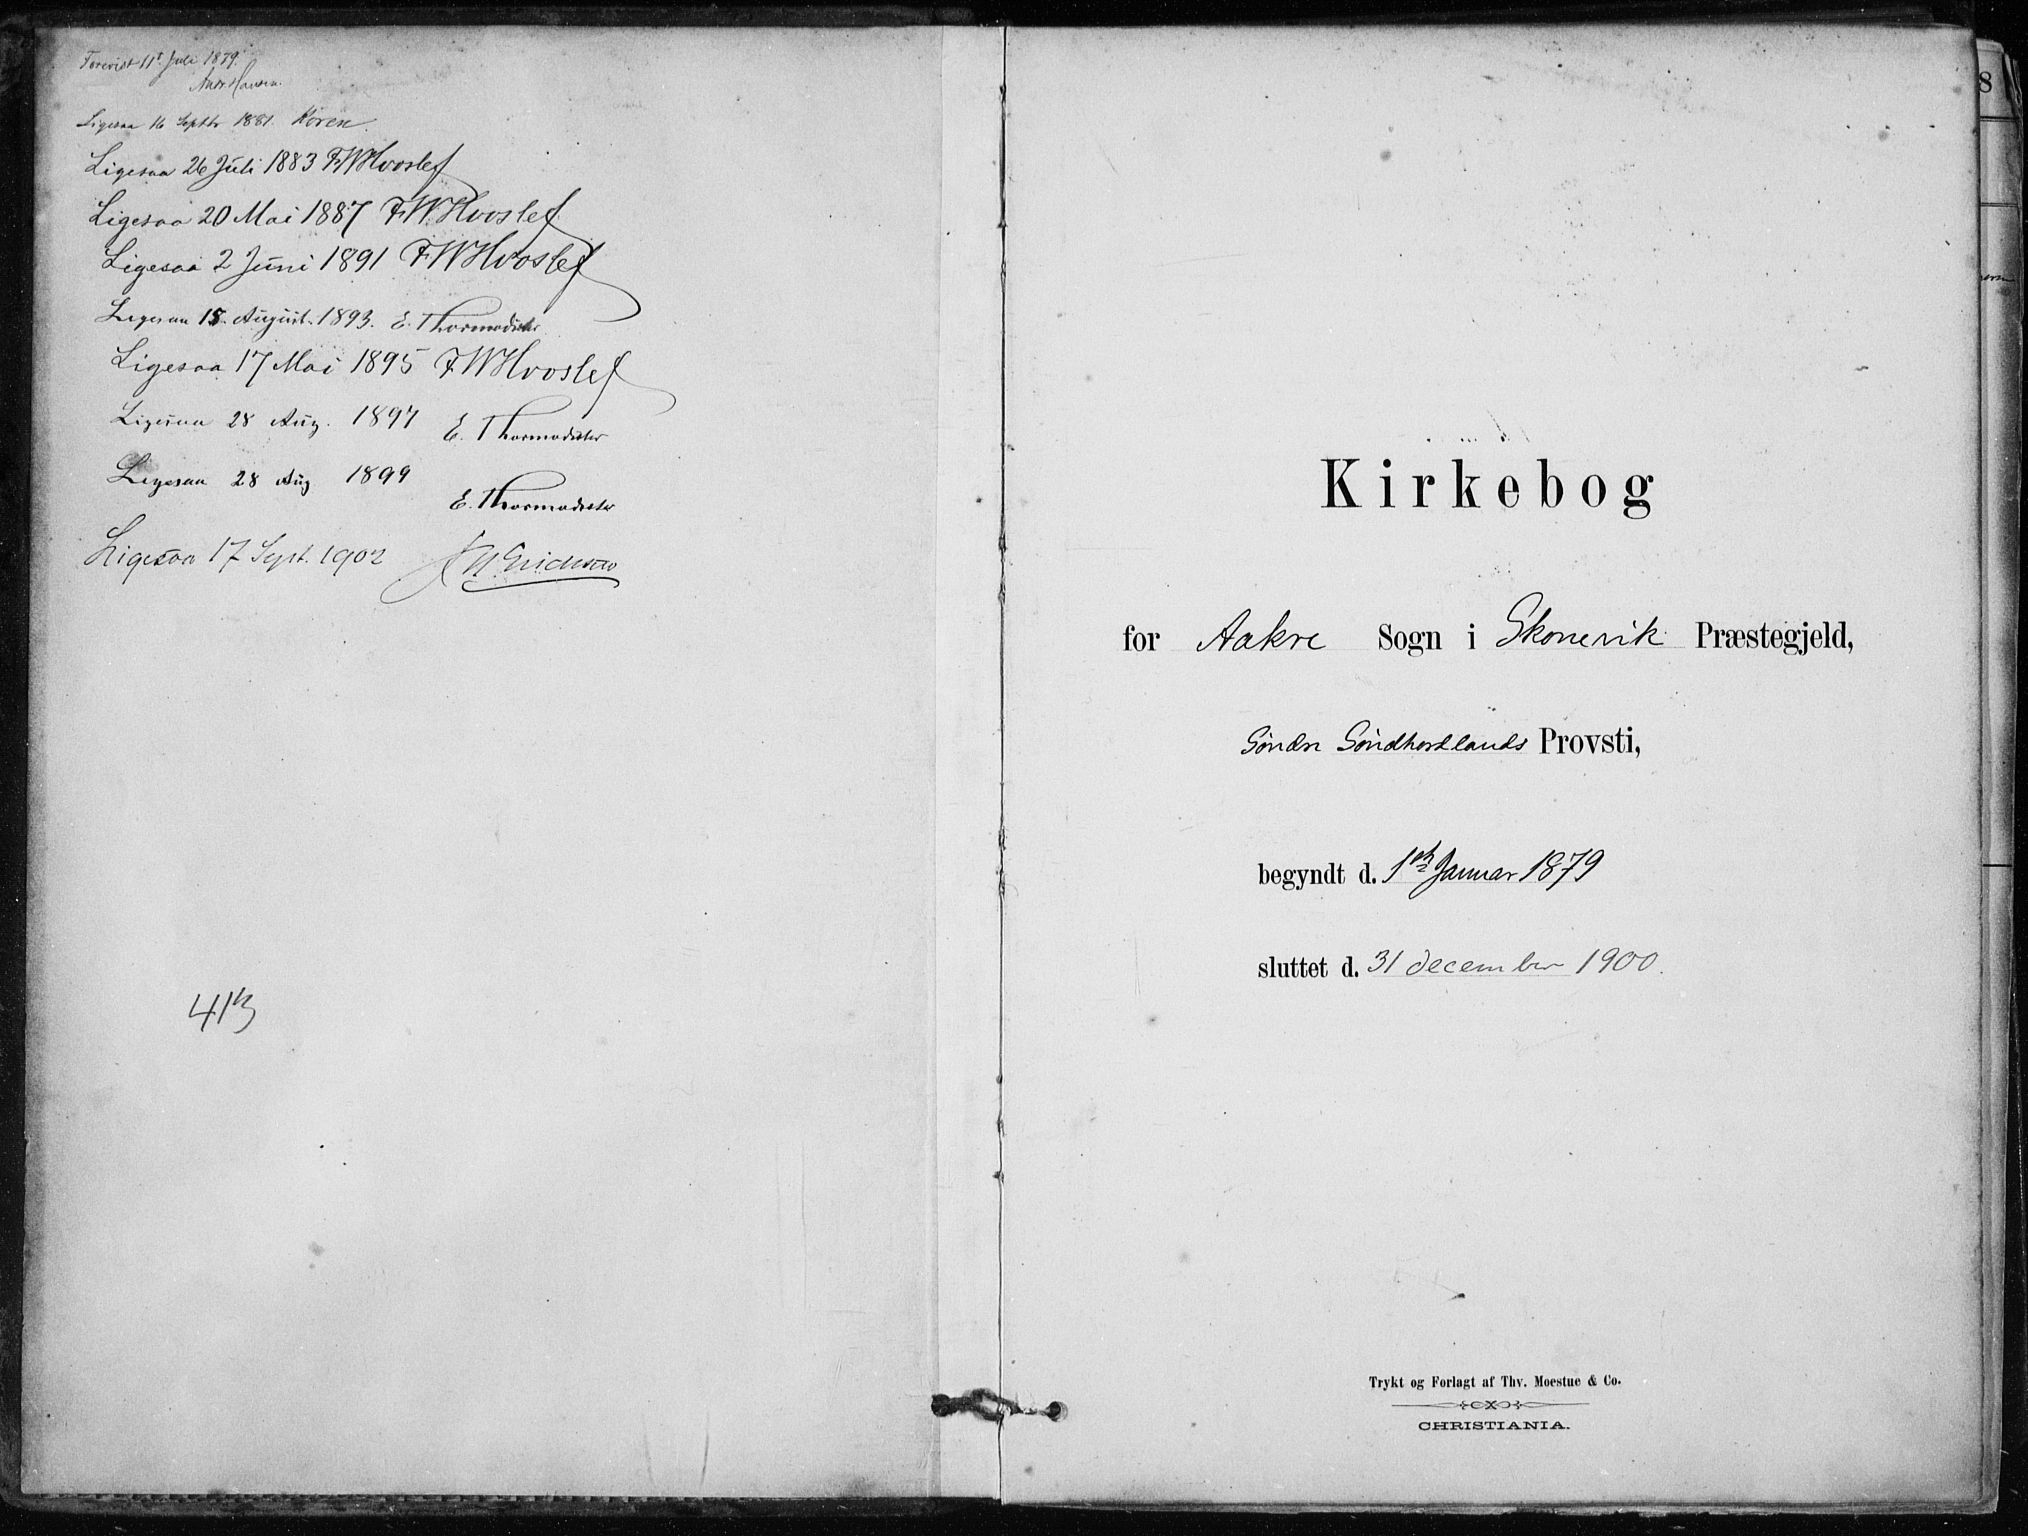 Forevist 11t Juli 1879.
Andr Hansen.
Ligesaa 16 Septbr 1881. Koren.
Ligesaa 26 Juli 1883 FWHvoslef
Ligesaa 20 Mai 1887 FWHvoslef
Ligesaa 2 Juni 1891 FWHvoslef
Ligesaa 15. August. 1893. E. Thormodsæter
Ligesaa 17 Mai 1895 FWHvoslef
Ligesaa 28 Aug. 1897 E. Thormodsæter
Ligesaa 28 Aug 1899
E. Thormodsæter
Ligesaa 17 Sept. 1902
413
Kirkebog
for Aakre Sogn i Skonevik Præstegjeld,
Søndre Søndhordlands Provsti,
begyndt d. 1ste Januar 1879
sluttet d. 31 december 1900.
Trykt og Forlagt af Thv. Moestue & Co.
CHRISTIANIA.
8